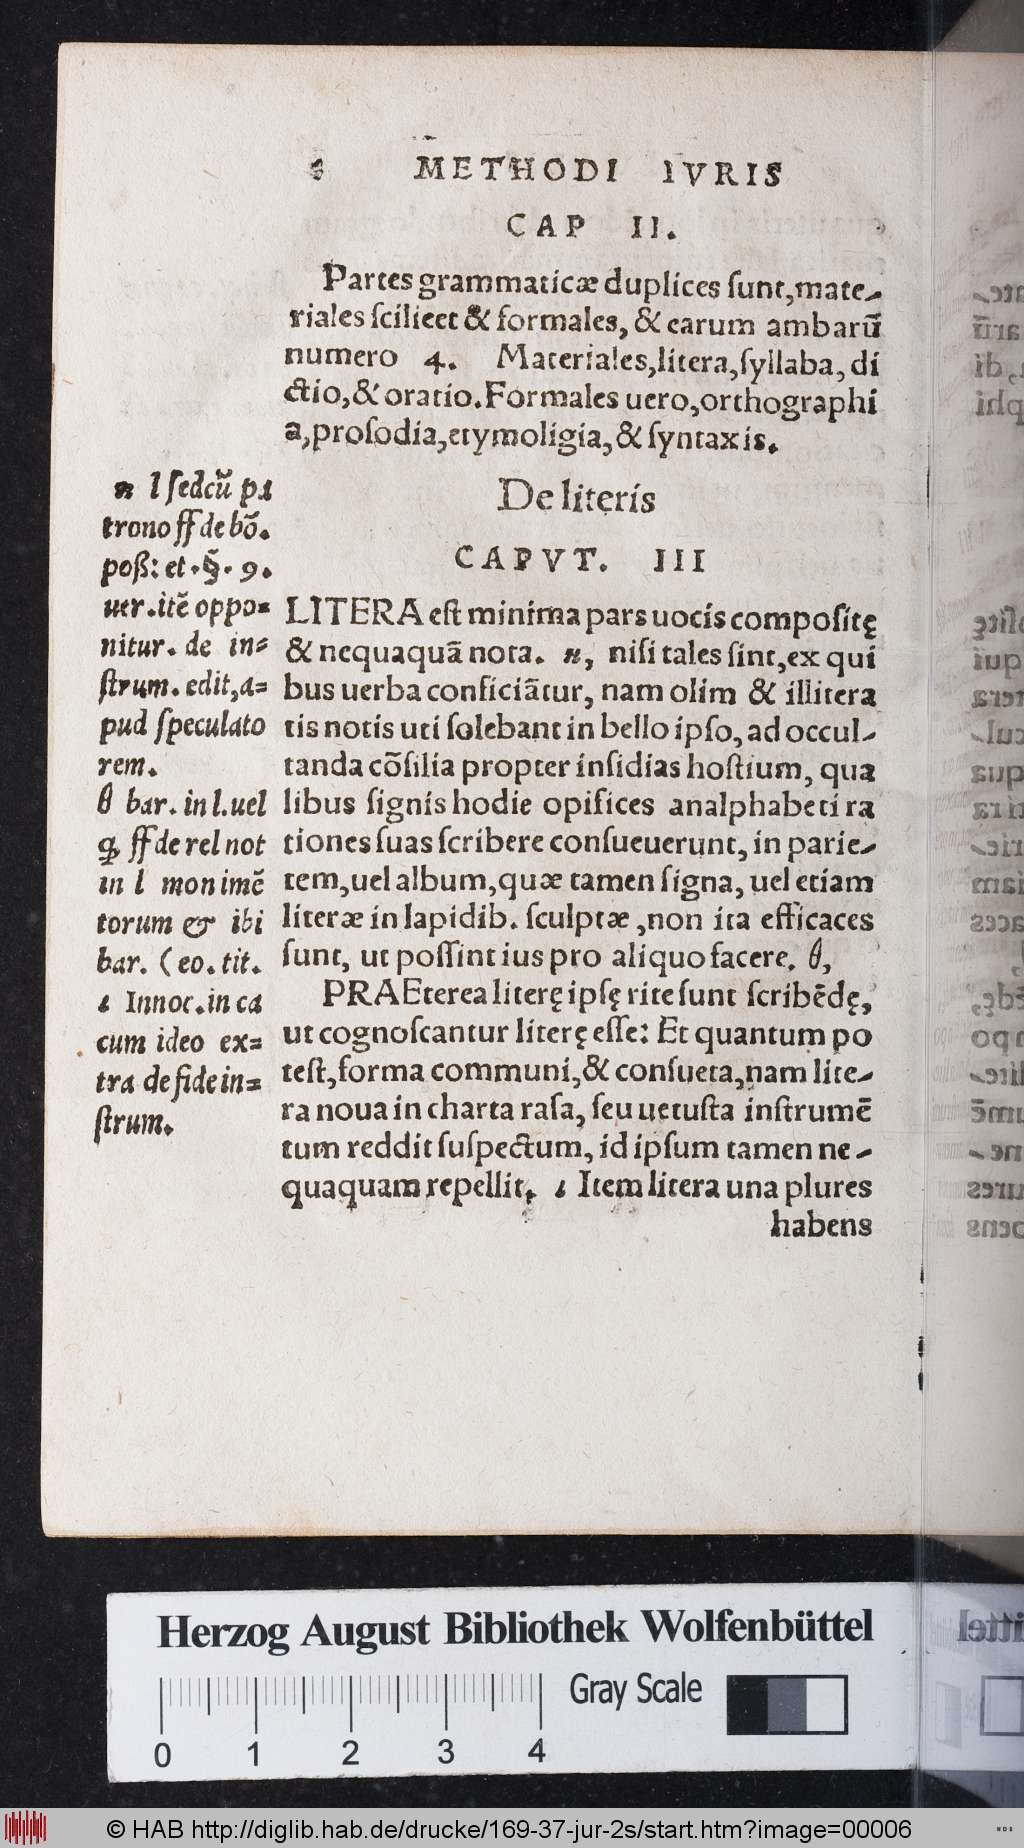 METHODI IVRIS
CAP II.
Partes grammaticæ duplices sunt, mate-
riales scilicet & formales, & earum ambarũ
numero 4. Materiales, litera, syllaba, di
ctio, & oratio. Formales uero, orthographi
a, prosodia, etymoligia, & syntaxis.
De literis
CAPVT. III
LITERA est minima pars uocis compositę
& nequaquã nota. η, nisi tales sint, ex qui
bus uerba conficiãtur, nam olim & illitera
tis notis uti solebant in bello ipso, ad occul-
tanda cõsilia propter insidias hostium, qua
libus signis hodie opifices analphabeti ra
tiones suas scribere consueuerunt, in parie-
tem, uel album, quæ tamen signa, uel etiam
literæ in lapidib. sculptæ, non ita efficaces
sunt, ut possint ius pro aliquo facere. θ,
PRAEterea literę ipsę rite sunt scribẽdę,
ut cognoscantur literę esse: Et quantum po
test, forma communi, & consueta, nam lite-
ra noua in charta rasa, seu uetusta instrumẽ
tum reddit suspectum, id ipsum tamen ne-
quaquam repellit. ι Item litera una plures
habens
η l sed cũ pa
trono ff de bõ.
poß: et .§. 9.
uer. itẽ oppo=
nitur. de in=
strum. edit, a=
pud speculato
rem.
θ bar. in l. uel
ꝗ ff de rel not
in l monimẽ
torum & ibi
bar. ( eo. tit.
ι Innoc. in ca
cum ideo ex=
tra de fide in=
strum.
Herzog August Bibliothek Wolfenbüttel
Gray Scale
0 1 2 3 4
© HAB http://diglib.hab.de/drucke/169-37-jur-2s/start.htm?image=00006